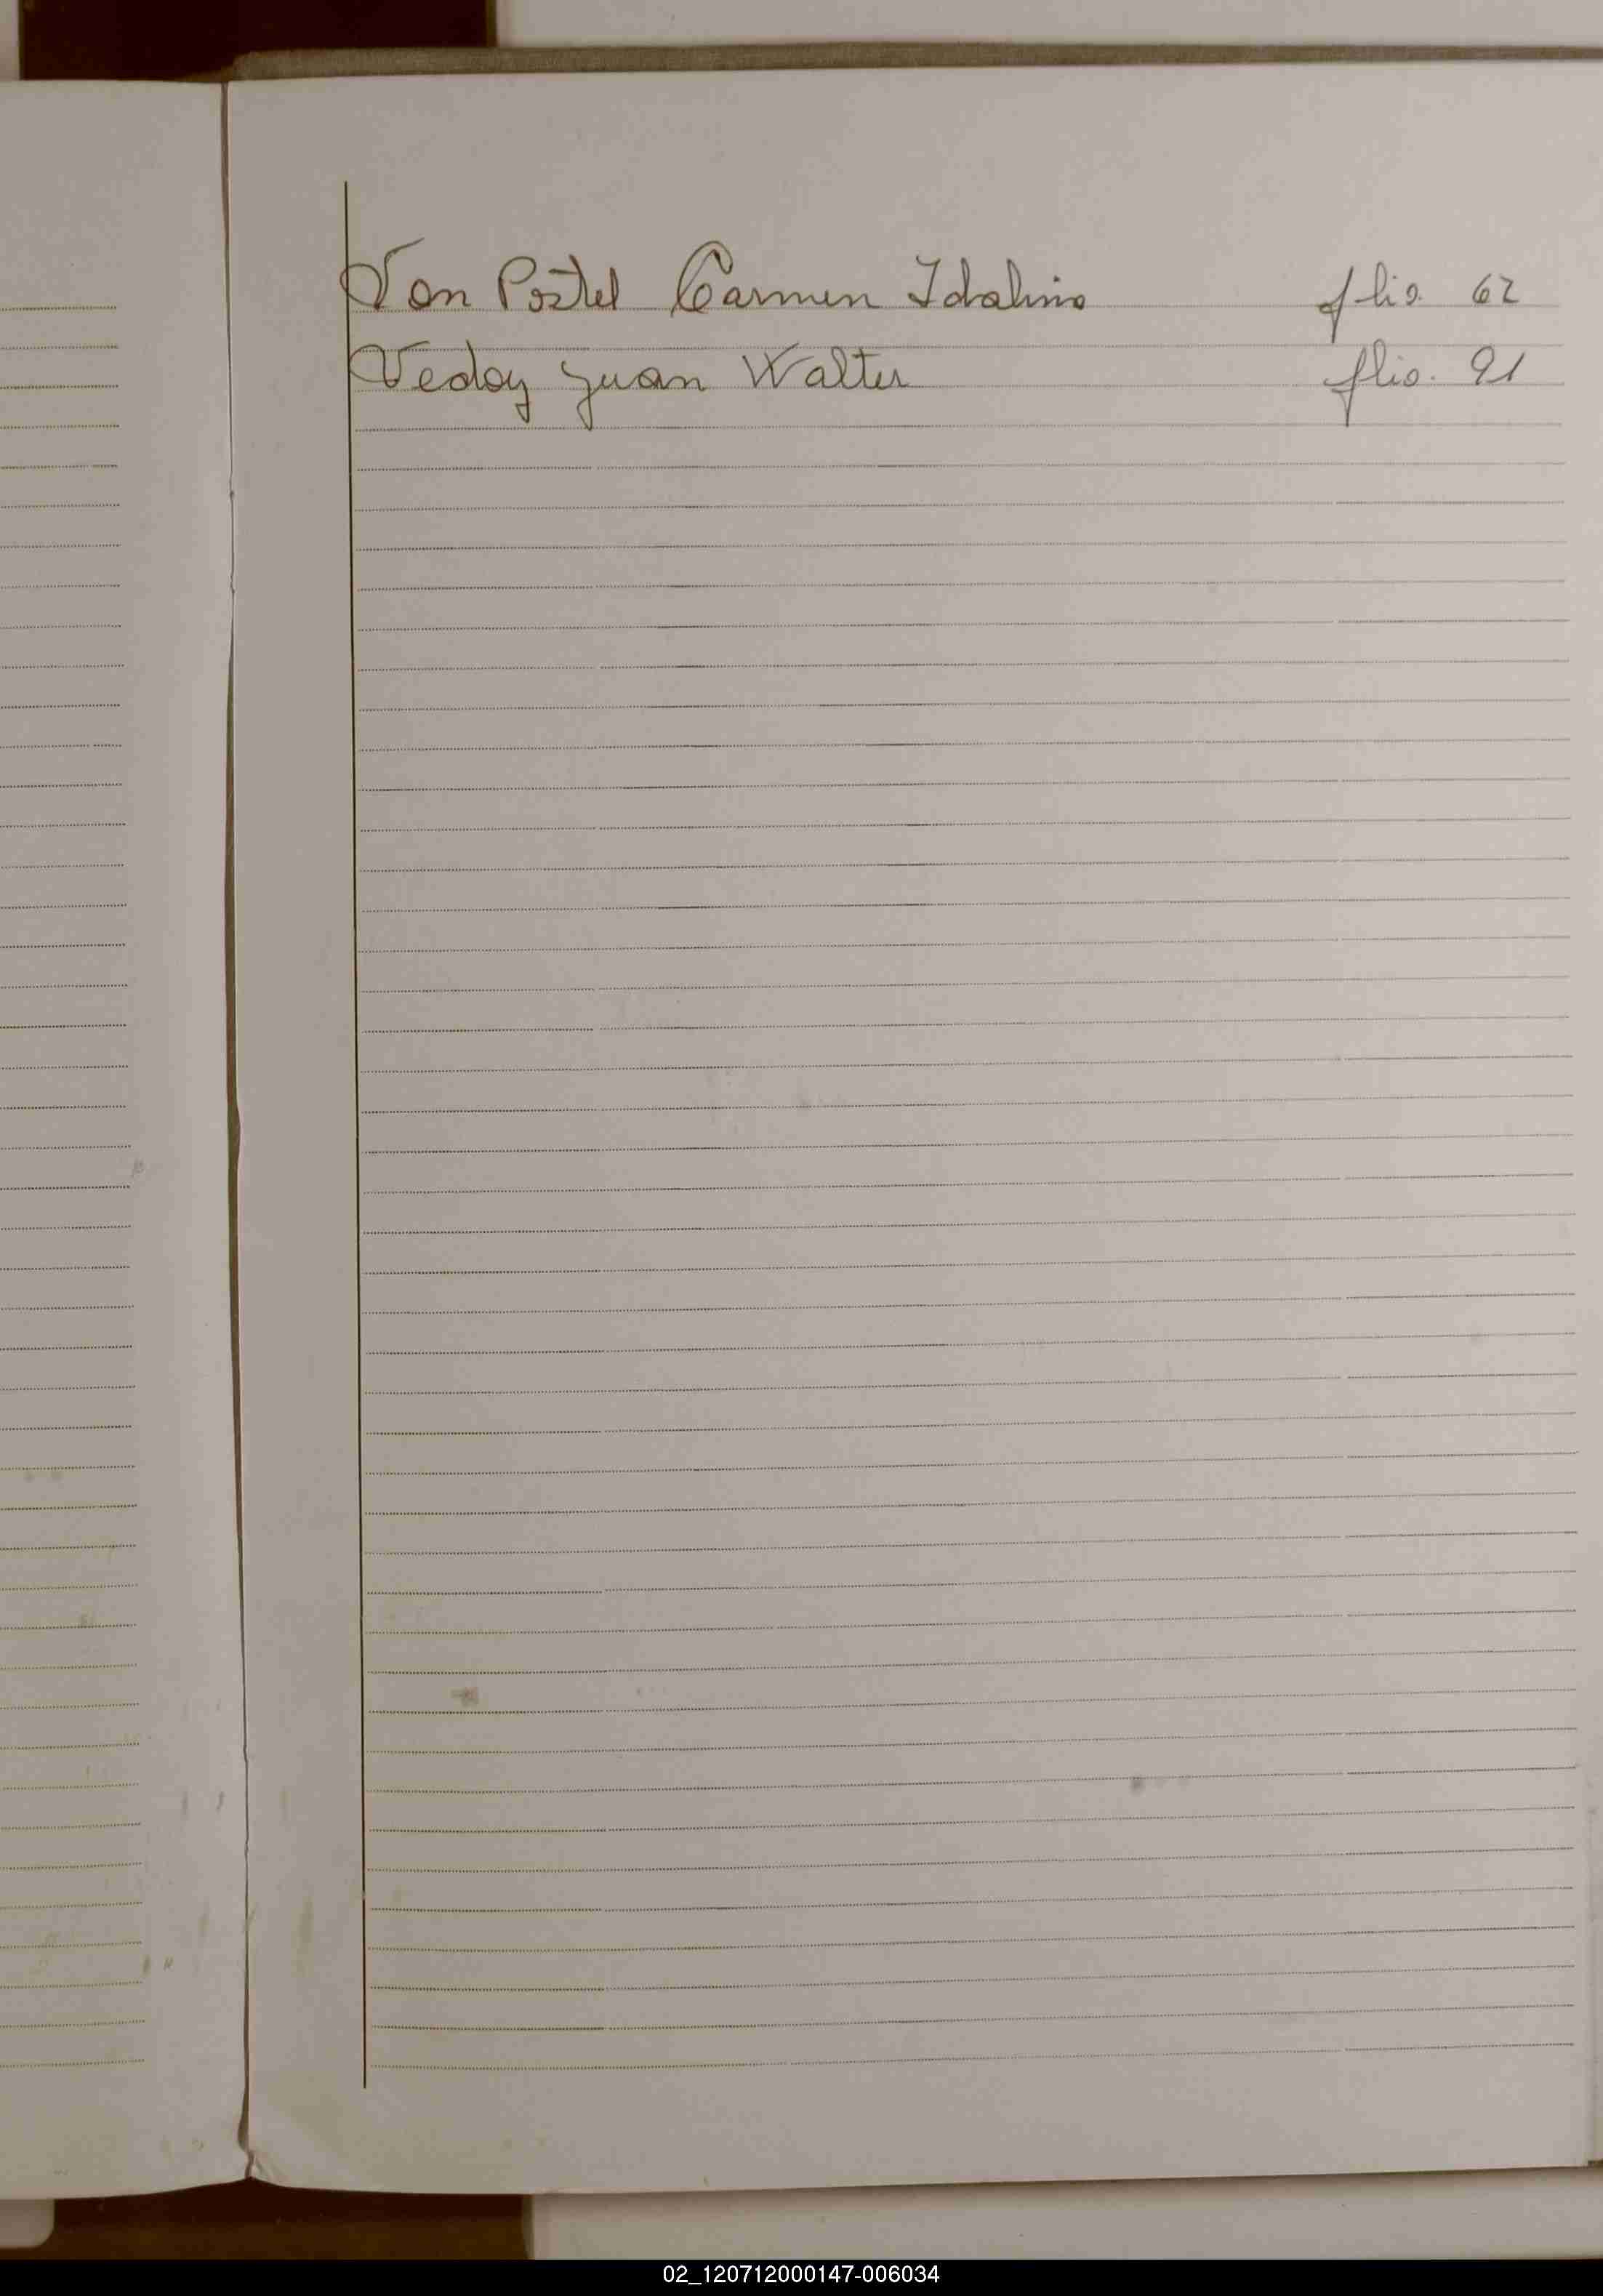 Von Postel Carmen Idalina flio. 62
Vedoy Juan Walter flio. 91
02_120712000147-006034